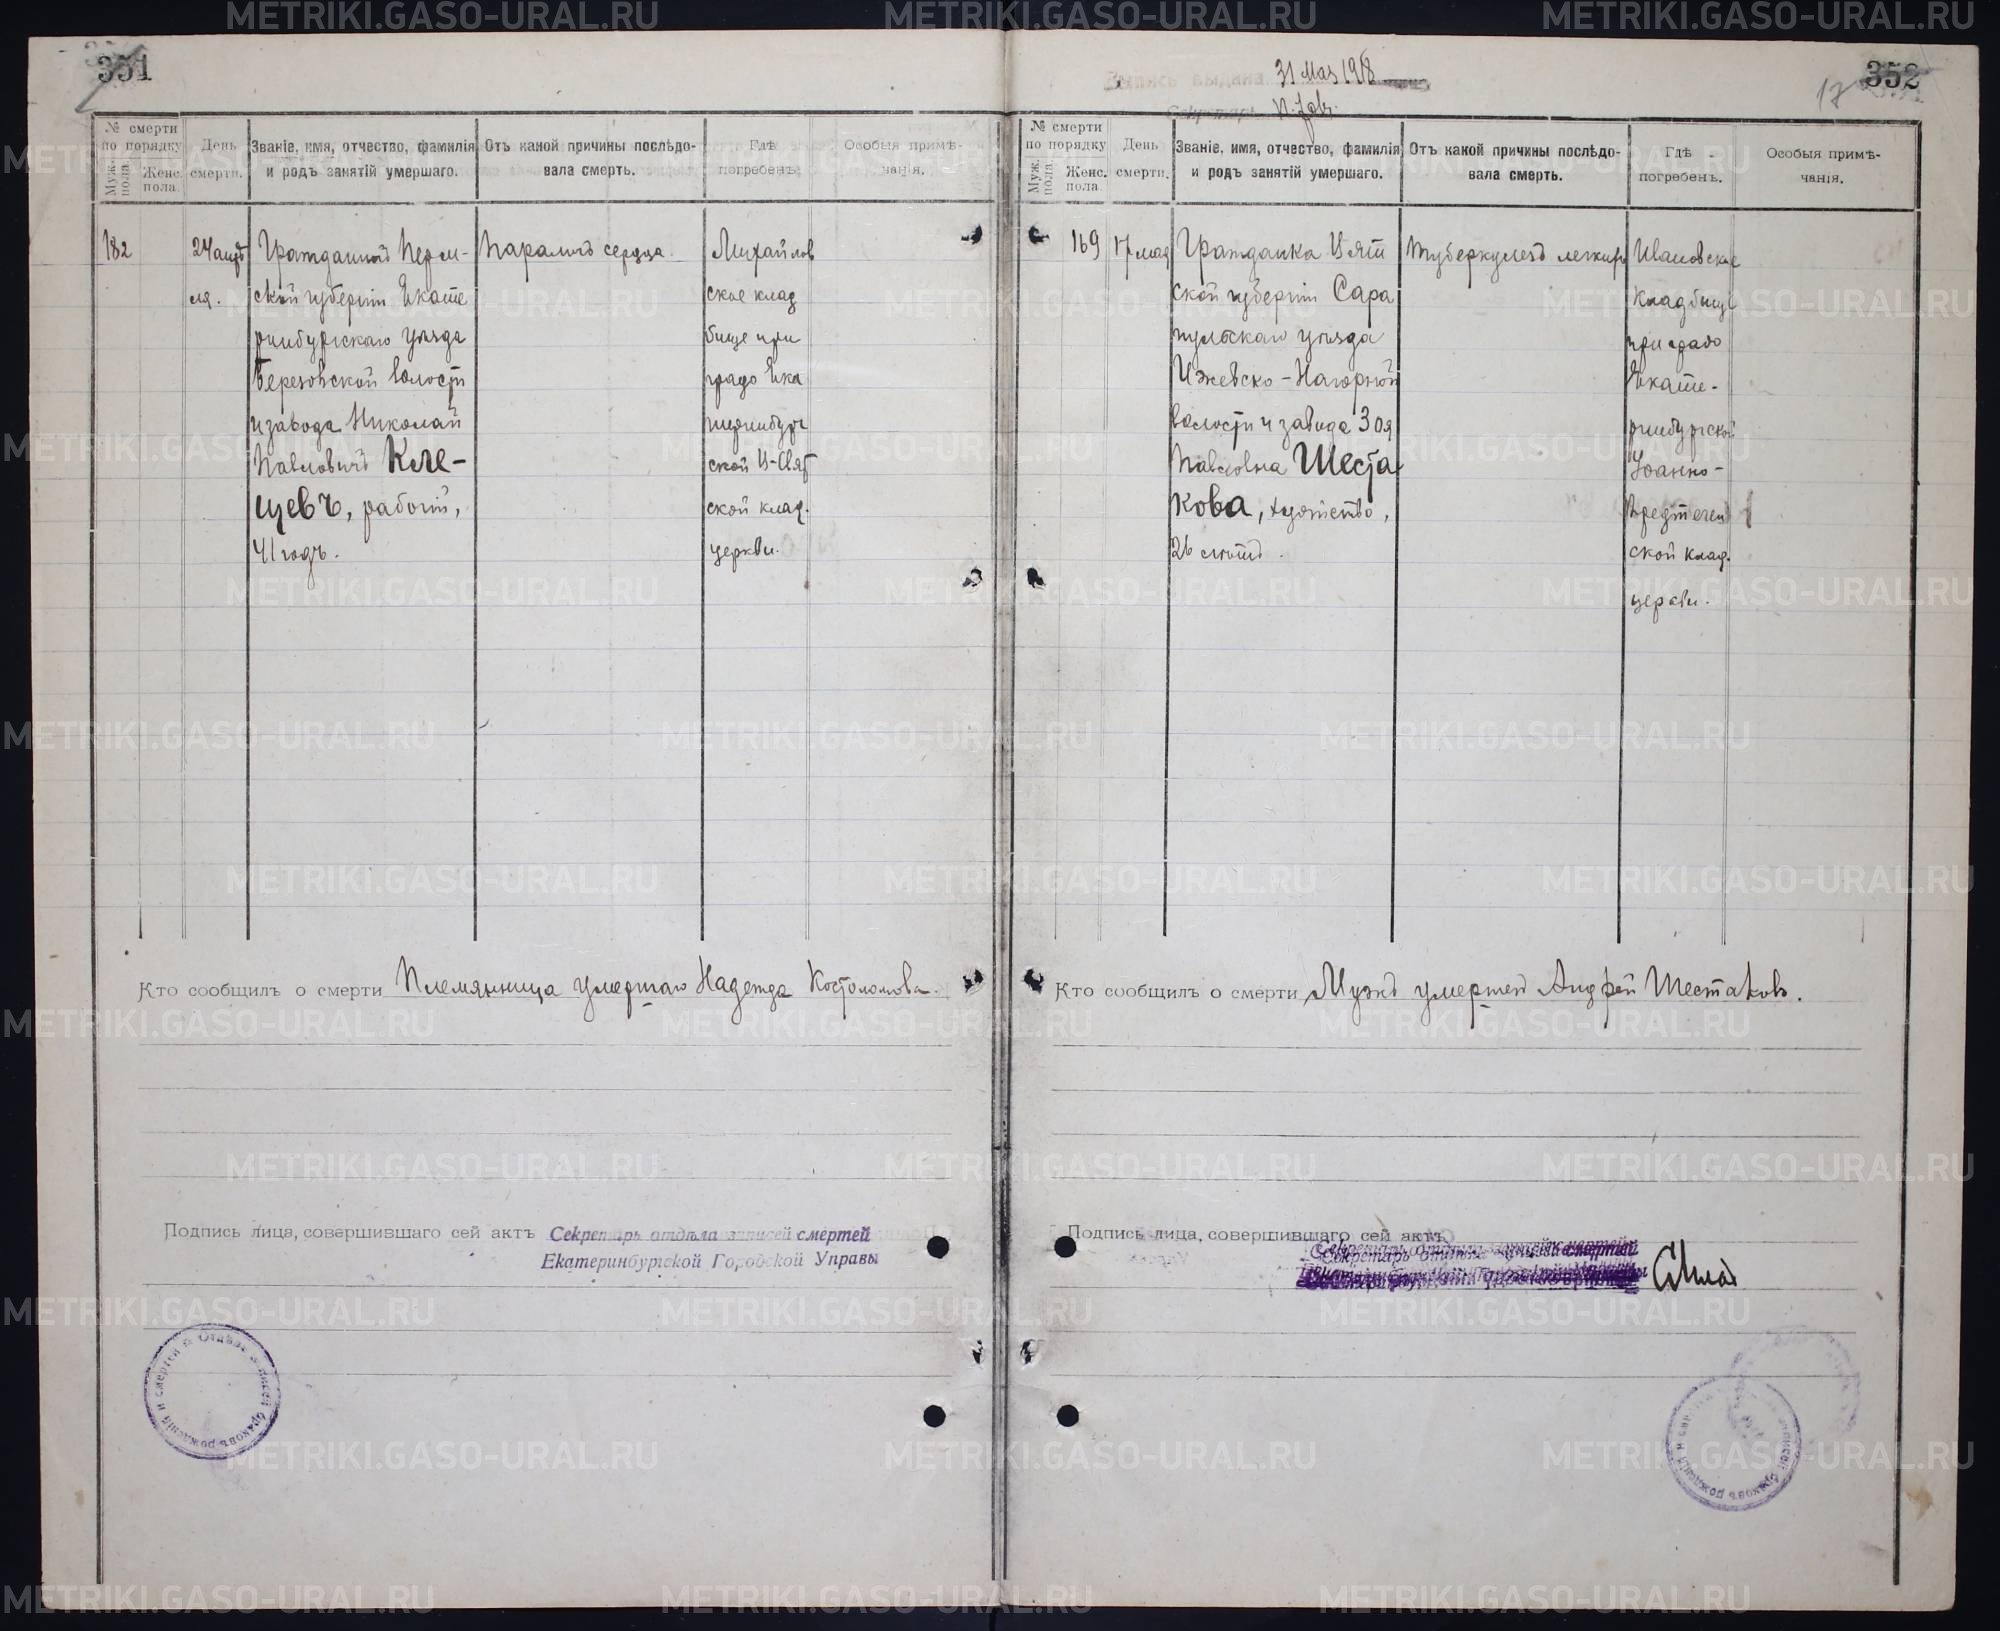 351
№ смерти по порядку
Муж. пола.
Женс. пола.
День смерти.
Званіе, имя, отчество, фамилія и родъ занятій умершаго.
Отъ какой причины послѣдовала смерть.
Гдѣ погребенъ.
Особыя примѣчанія.
182
24 апрѣ
ля.
Гражданинъ Перм-
ской губерніи Екате
ринбургскаго уѣзда
Березовской волости
и завода Николай
Павловичъ Кле-
щевъ, рабочій,
41 годъ.
Параличъ сердца.
Михайлов
ское клад
бище при
градо Ека
теринбург
ской В-Свят
ской клад.
церкви.
Кто сообщилъ о смерти Племянница умершаго Надежда Костоломова.
Подпись лица, совершившаго сей актъ Секретарь отдѣла записей смертей
Екатеринбургской Городской Управы
Отдѣлъ записей браковъ рожденій и смертей
31 Мая 1918
Секретарь
352
17
№ смерти по порядку
Муж. пола.
Женс. пола.
День смерти.
Званіе, имя, отчество, фамилія и родъ занятій умершаго.
Отъ какой причины послѣдовала смерть.
Гдѣ погребенъ.
Особыя примѣчанія.
169
17 мая
Гражданка Вят
ской губерніи Сара
пульскаго уѣзда
Ижевско-Нагорной
волости и завода Зоя
Павловна Шеста
кова, хозяйство,
26 лѣтъ.
Туберкулезъ легкихъ
Ивановское
кладбище
при градо
Екате-
ринбургской
Іоанно-
Предтечен
ской клад.
церкви.
Кто сообщилъ о смерти Мужъ умершей Андрей Шестаковъ.
Подпись лица, совершившаго сей актъ
Секретарь отдѣла записей смертей
METRIKI.GASO-URAL.RU